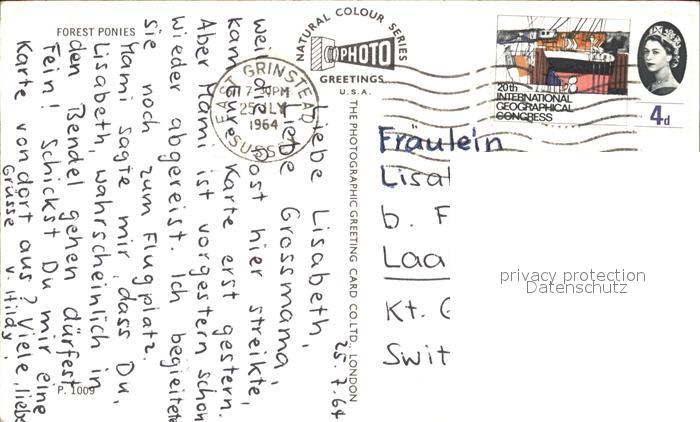 FOREST PONIES
NATURAL COLOUR SERIES
PHOTO
GREETINGS
U.S.A.
EAST GRINSTEAD
7-30PM
25 JLY
1964
SUSSEX
20th
INTERNATIONAL
GEOGRAPHICAL
CONGRESS
4d
THE PHOTOGRAPHIC GREETING CARD CO.LTD., LONDON
25.7.64
Liebe Lisabeth,
Liebe Grossmama,
weil die Post hier streikte,
kam Eure Karte erst gestern.
Aber Mami ist vorgestern schon
wieder abgereist. Ich begleitete
sie noch zum Flugplatz.
Mami sagte mir, dass Du,
Lisabeth, wahrscheinlich in
den Bendel gehen dürfest
Fein! Schickst Du mir eine
Karte von dort aus? Viele, liebe
Grüsse v. Hildy.
P. 1009
Fräulein
Lisa
b. F
Laa
Kt. G
Swit
privacy protection
Datenschutz